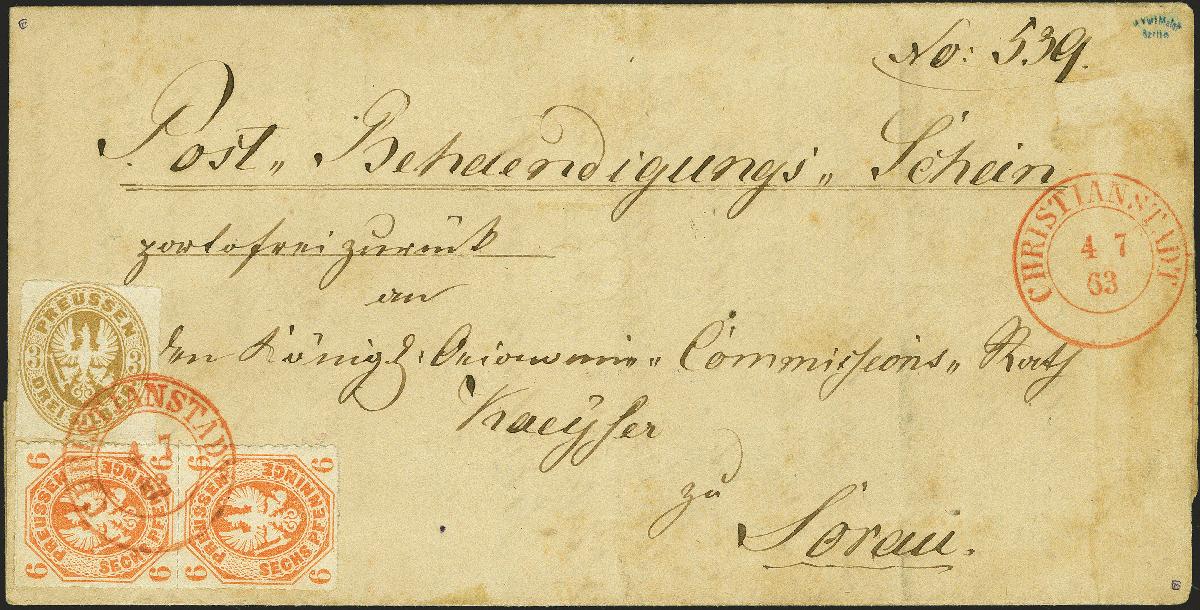 No: 539.
Post„ Behaendigungs„ Schein
portofrei zurück
an
den Königl: Oeconomie„ Commissions„ Rath
Kaeyser
zu
Sorau.
CHRISTIANSTADT
4 7
63
PREUSSEN
3 3
DREI
CHRISTIANSTADT
4 7
63
6 6
PREUSSEN
SECHS PFENNINGE
6 6
6 6
PREUSSEN
SECHS PFENNINGE
6 6
Berlin